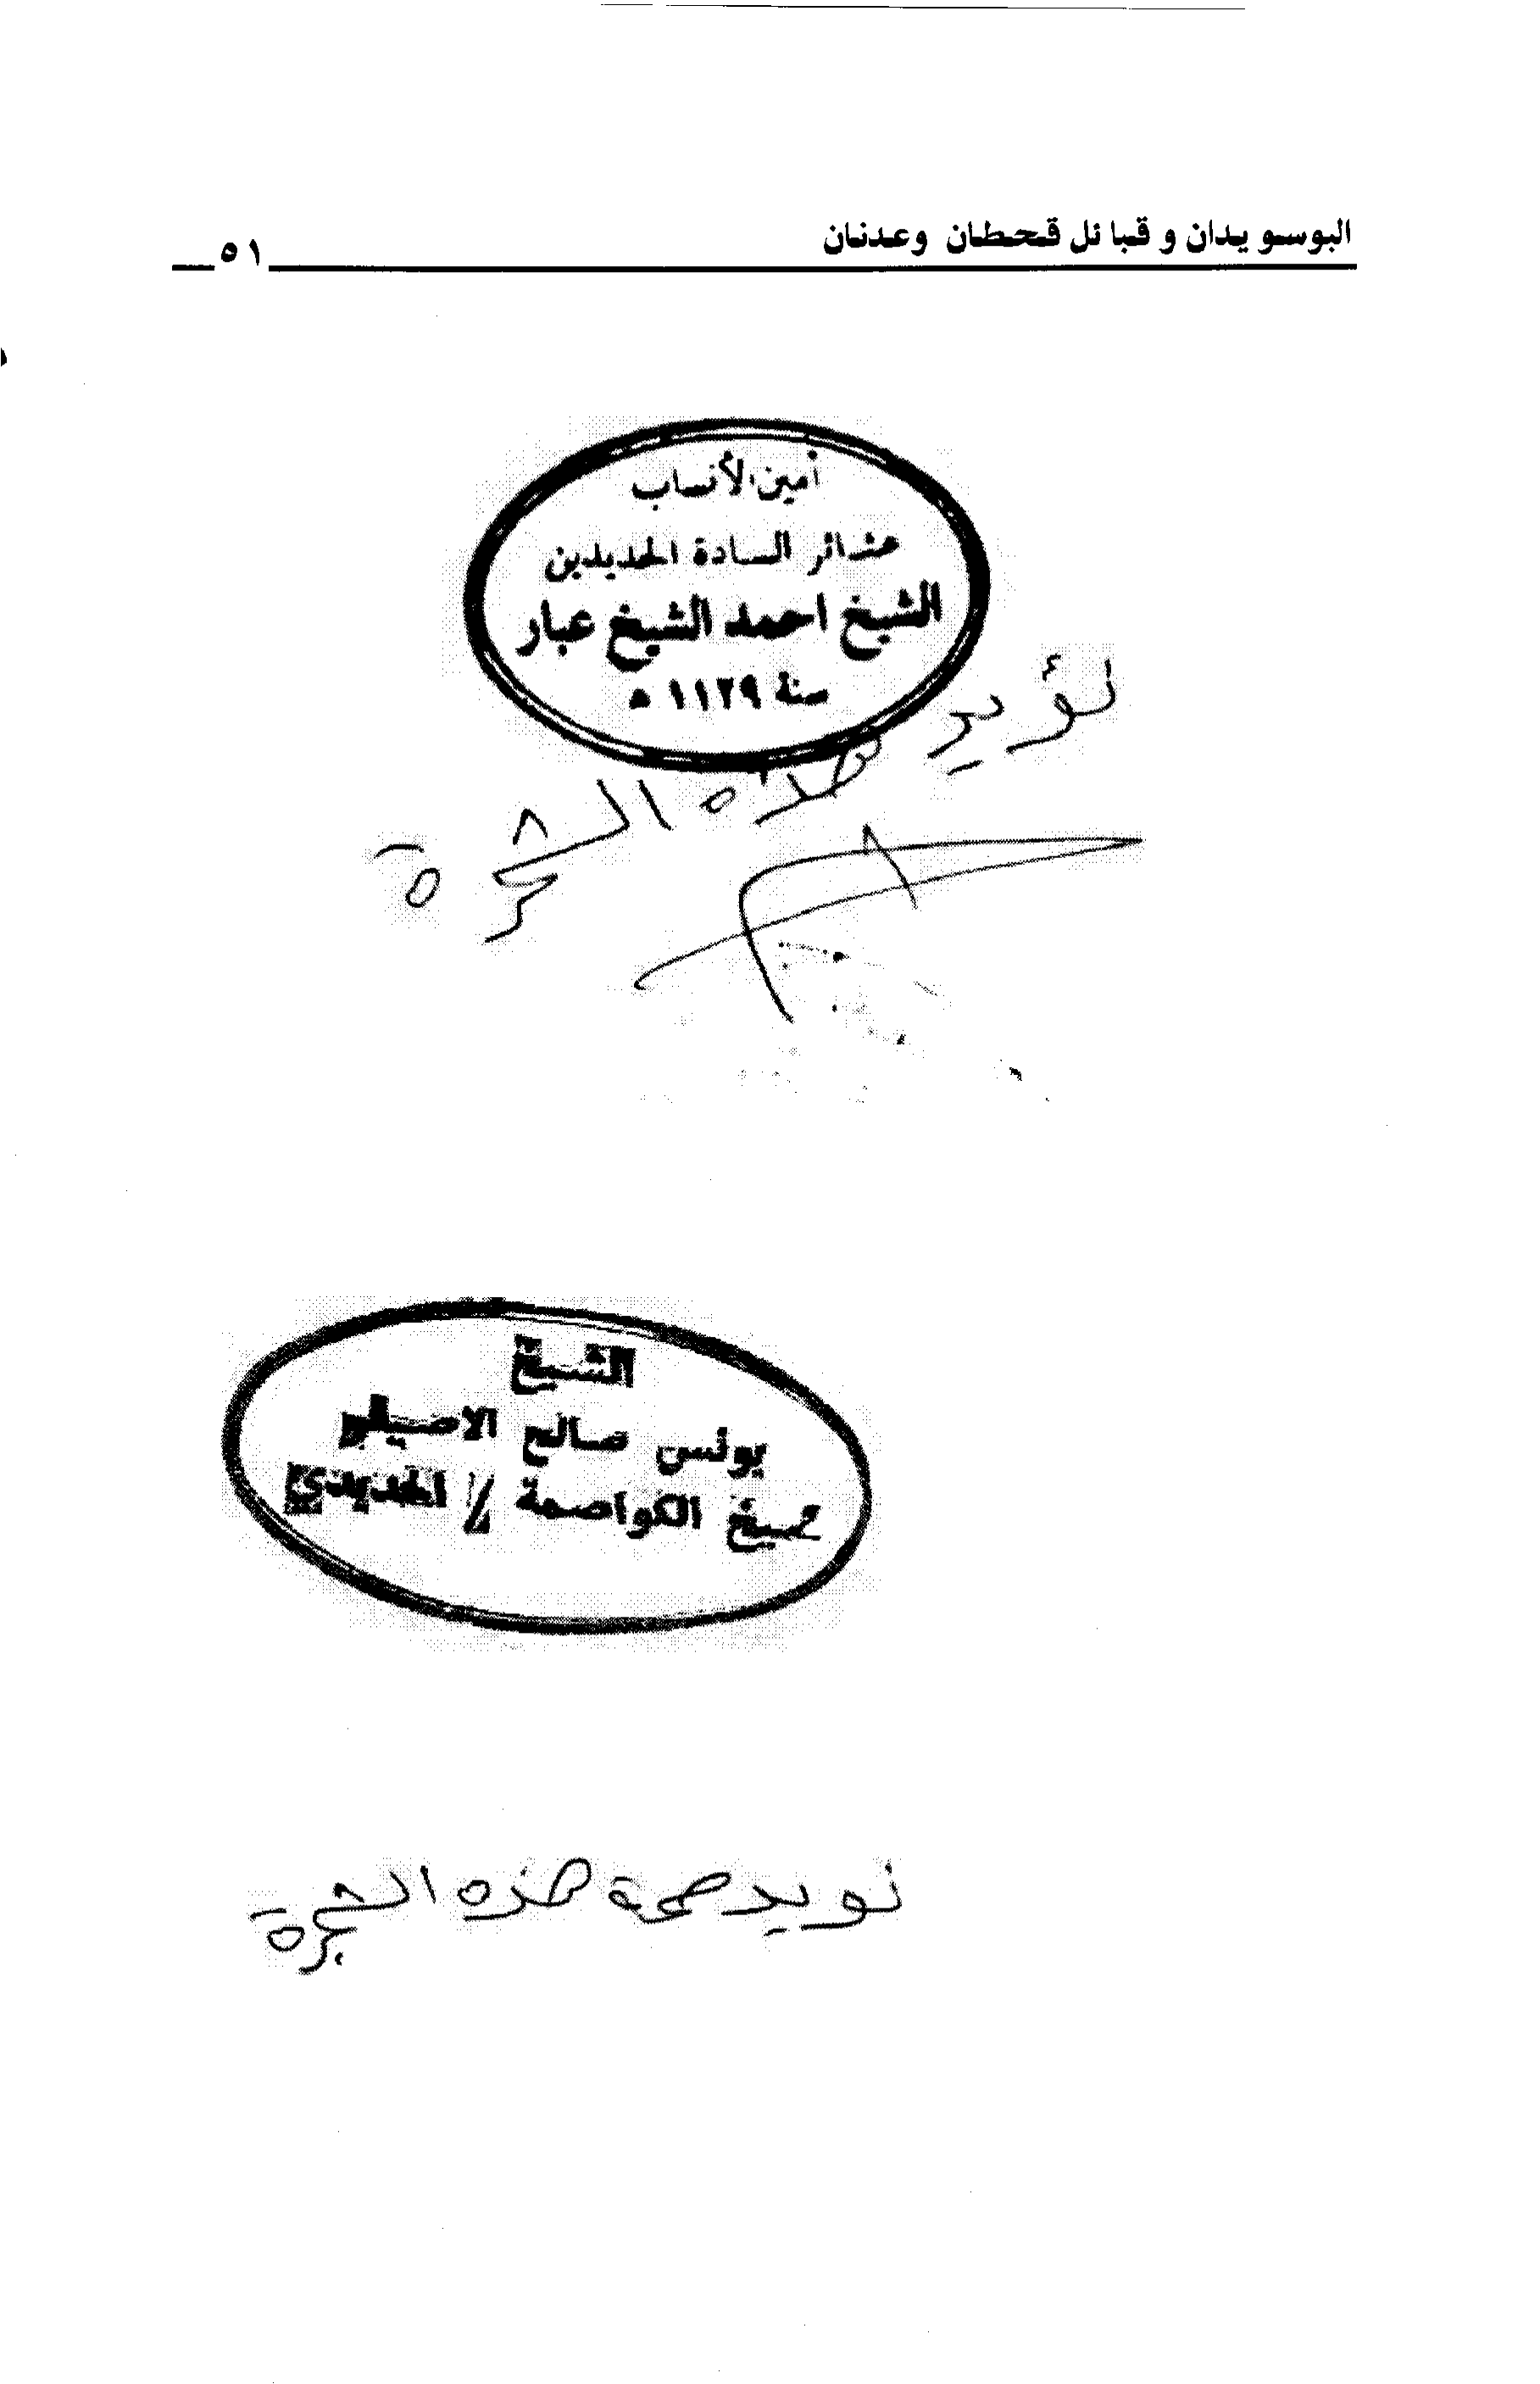 البوسويدان و قبائل قحطان وعدنان
٥١
أمين الأنساب
عشائر السادة الحديديين
الشيخ احمد الشيخ عبار
سنة ١١٢٩ هـ
نؤيد هذه الشجرة
الشيخ
يونس صالح
شيخ الكواصمة / الحديدي
نويد صحة هذه الشجرة